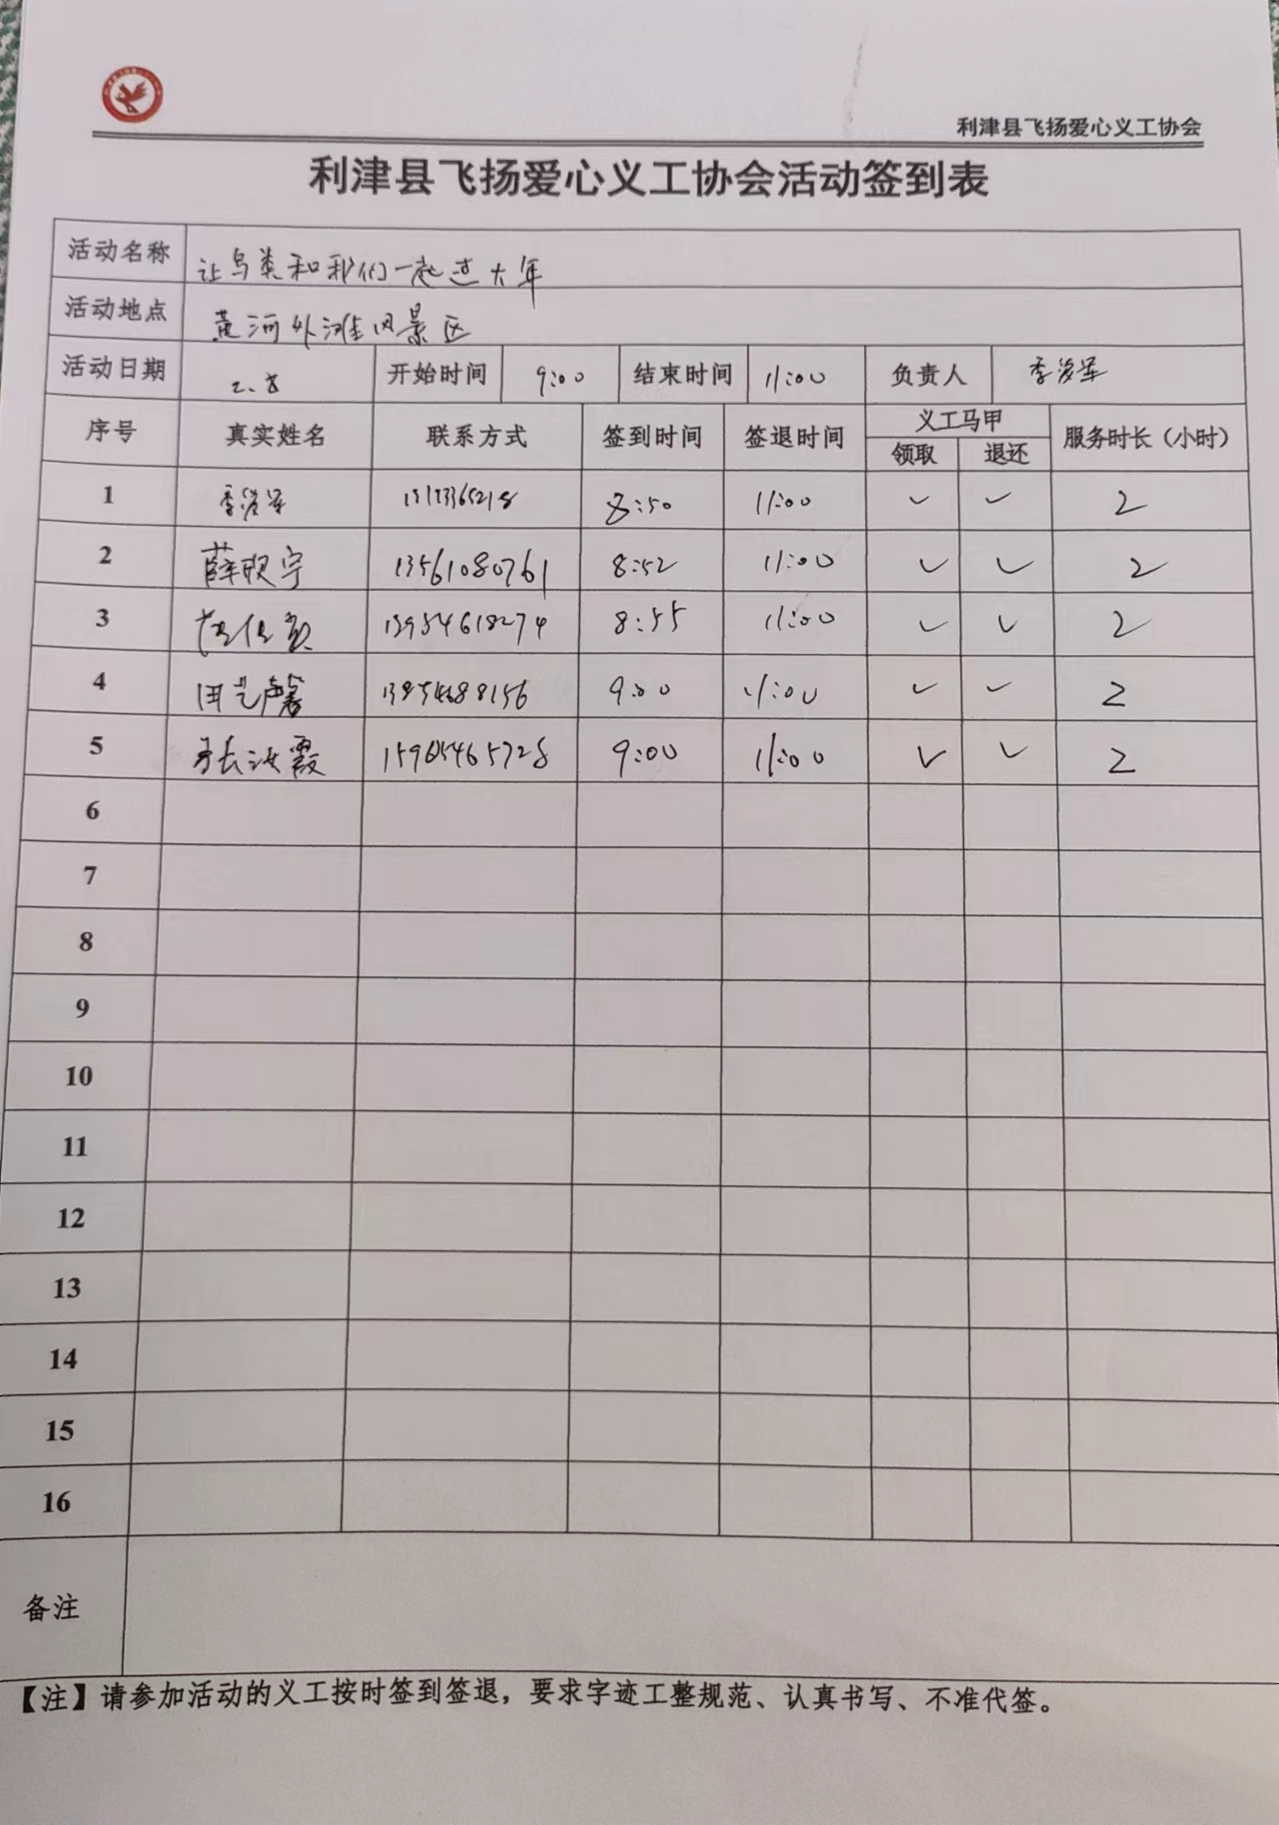 利津县飞扬爱心义工协会
利津县飞扬爱心义工协会活动签到表
活动名称 让鸟类和我们一起过大年
活动地点 黄河外滩风景区
活动日期 2.8 开始时间 9:00 结束时间 11:00 负责人 李
序号 真实姓名 联系方式 签到时间 签退时间 义工马甲 服务时长（小时）
领取 退还
1 李 8:50 11:00 ✓ ✓ 2
2 薛 宁 13561080761 8:52 11:00 ✓ ✓ 2
3 13954618274 8:55 11:00 ✓ ✓ 2
4 田艺馨 13854688156 9:00 11:00 ✓ ✓ 2
5 张 霞 15965465728 9:00 11:00 ✓ ✓ 2
6
7
8
9
10
11
12
13
14
15
16
备注
【注】请参加活动的义工按时签到签退，要求字迹工整规范、认真书写、不准代签。